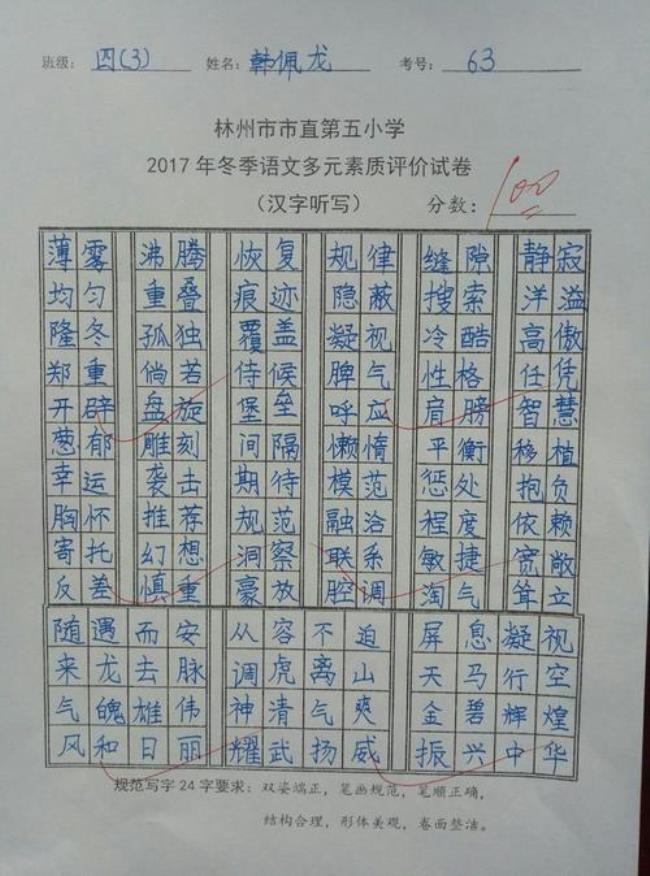 班级: 四(3) 姓名: 韩佩龙 考号: 63
林州市市直第五小学
2017年冬季语文多元素质评价试卷
(汉字听写) 分数: 100
薄雾 沸腾 恢复 规律 缝隙 静寂
均匀 重叠 痕迹 隐蔽 搜索 洋溢
隆冬 孤独 覆盖 凝视 冷酷 高傲
郑重 倘若 侍候 脾气 性格 任凭
开辟 盘旋 堡垒 呼应 肩膀 智慧
葱郁 雕刻 间隔 懒惰 平衡 移植
幸运 袭击 期待 模范 惩处 抱负
胸怀 推荐 规范 融洽 程度 依赖
寄托 幻想 洞察 联系 敏捷 宽敞
反差 慎重 豪放 腔调 淘气 耸立
随遇而安 从容不迫 屏息凝视
来龙去脉 调虎离山 天马行空
气魄雄伟 神清气爽 金碧辉煌
风和日丽 耀武扬威 振兴中华
规范写字24字要求: 双姿端正, 笔画规范, 笔顺正确,
结构合理, 形体美观, 卷面整洁。